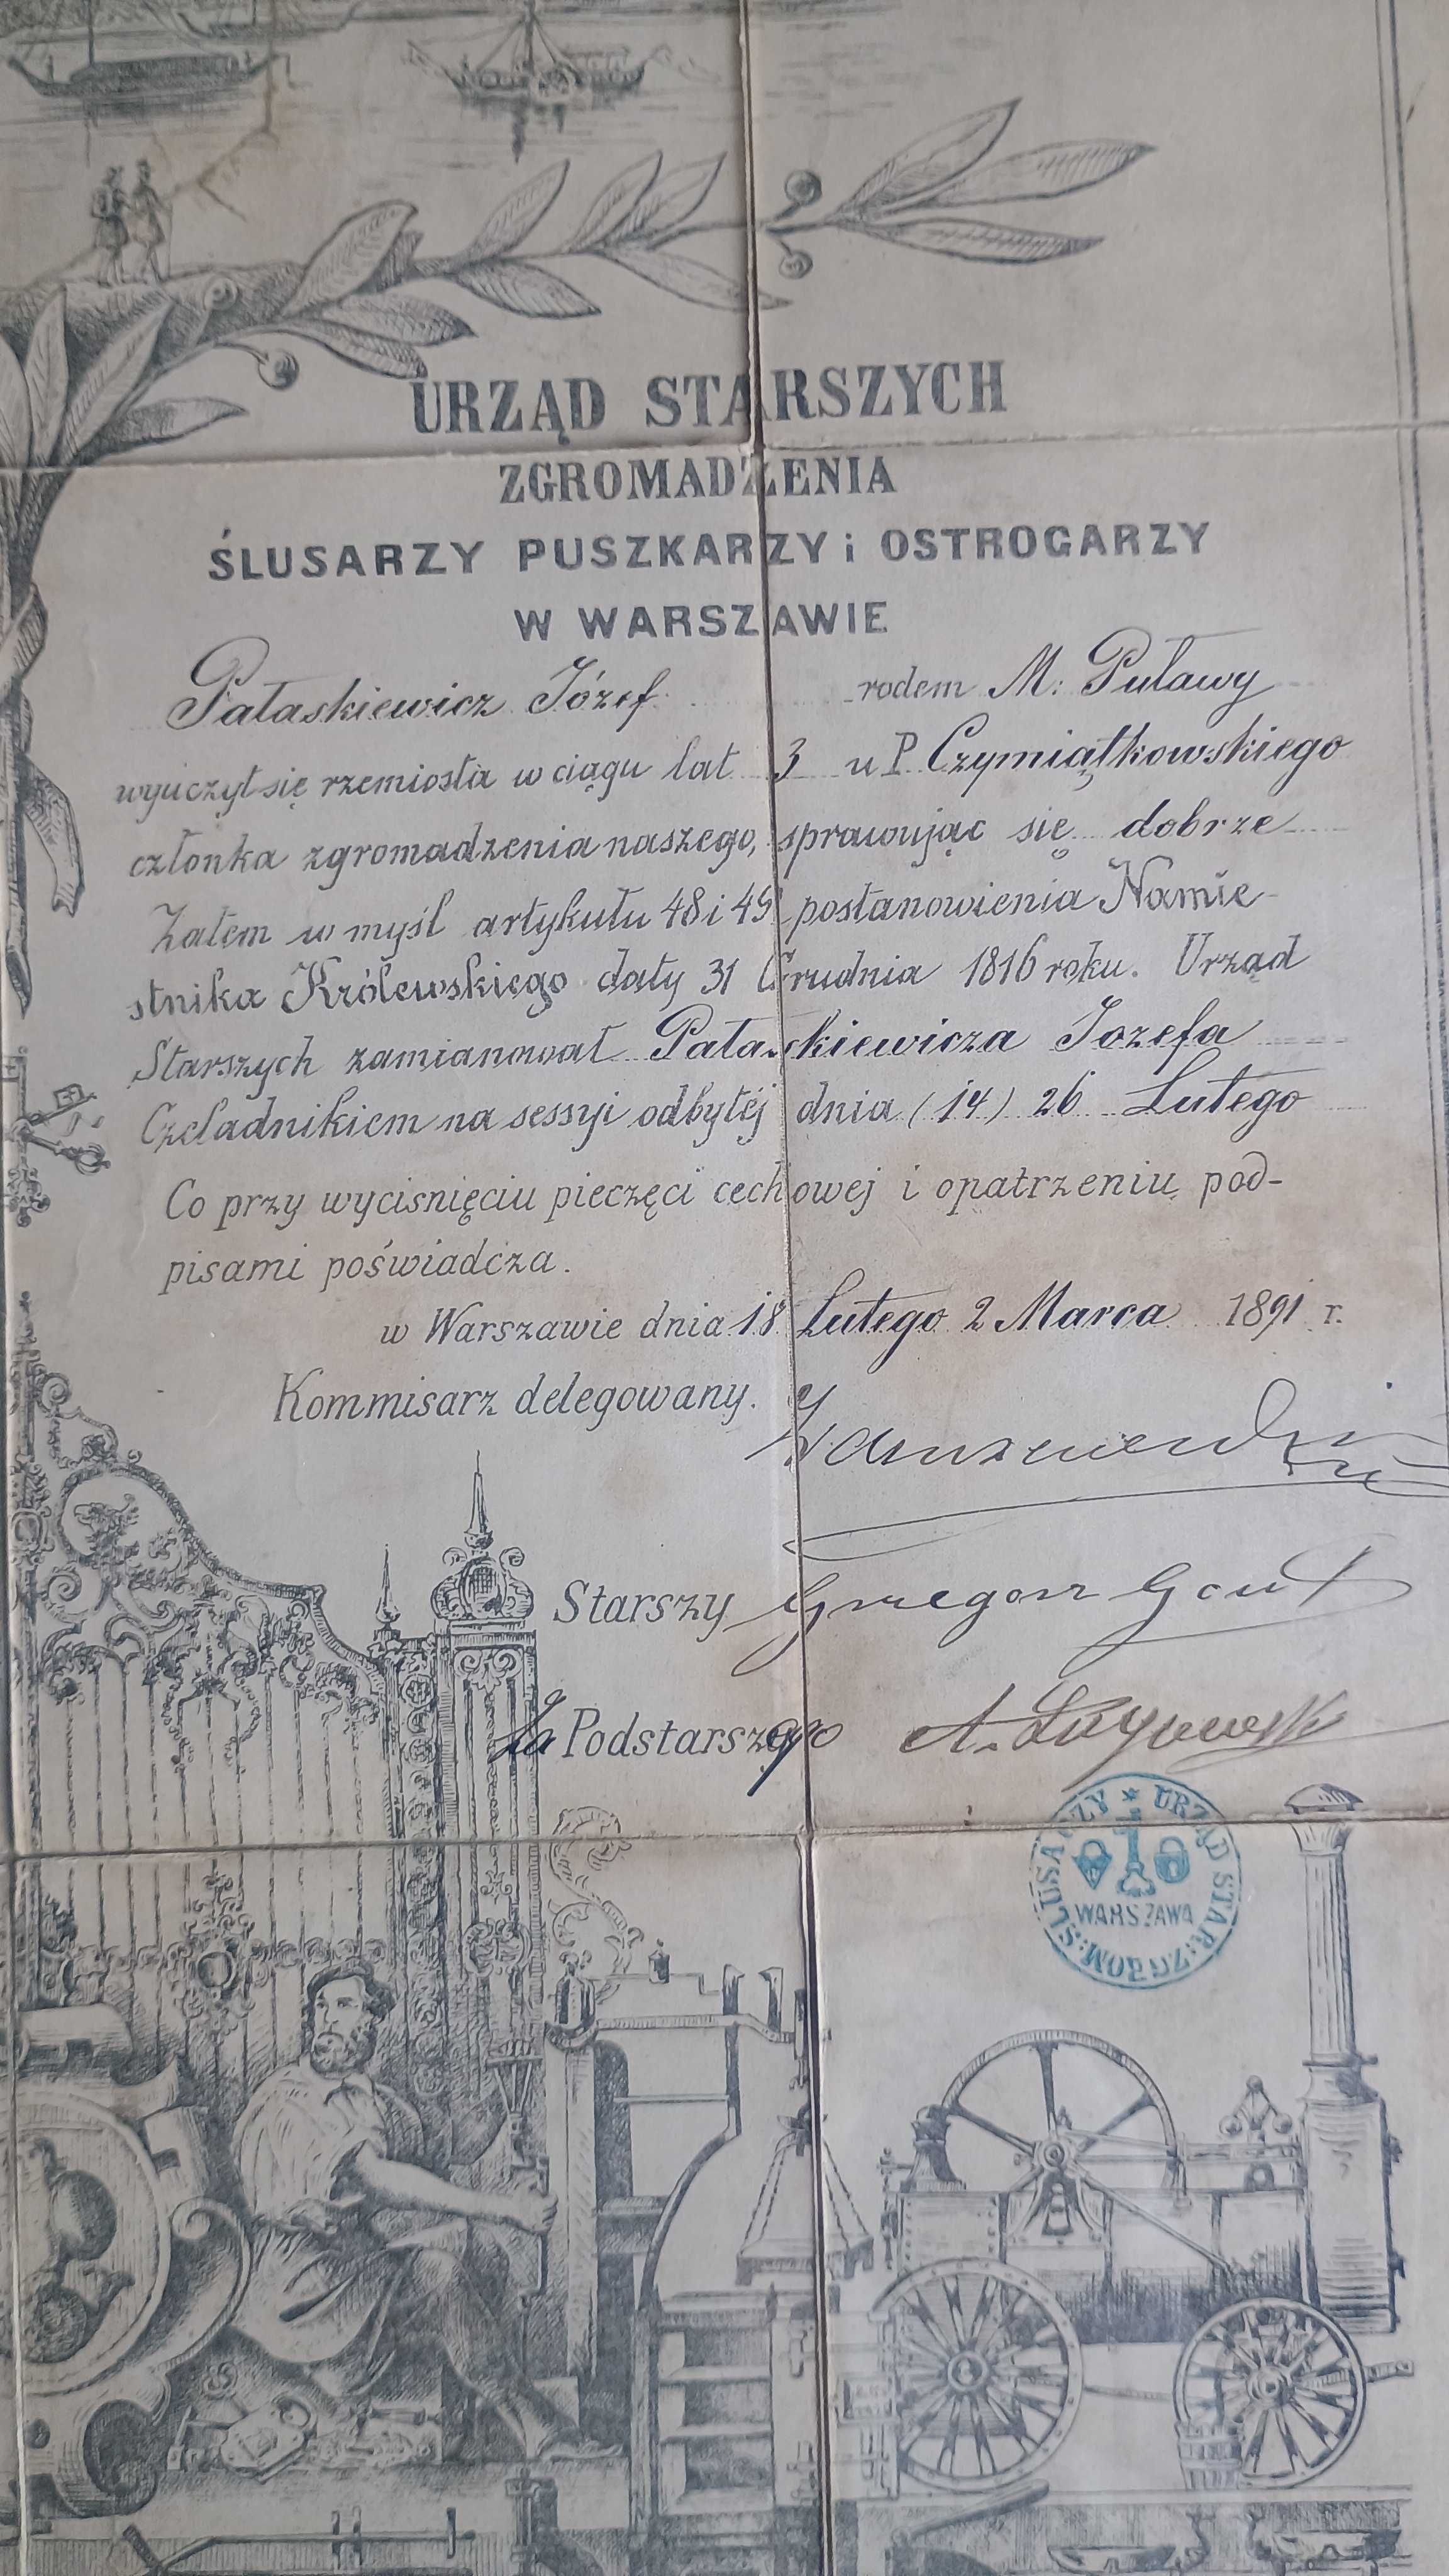 URZĄD STARSZYCH
ZGROMADZENIA
ŚLUSARZY PUSZKARZY i OSTROGARZY
W WARSZAWIE
Pałaskiewicz Józef rodem M: Puławy
wyuczył się rzemiosła w ciągu lat 3 u P. Czymiątkowskiego
członka zgromadzenia naszego, sprawując się dobrze
Zatem w myśl artykułu 48 i 49 postanowienia Namie-
stnika Królewskiego daty 31 Grudnia 1816 roku. Urząd
Starszych zamianował Pałaskiewicza Jozefa
Czeladnikiem na sessyi odbytéj dnia (14) 26 Lutego
Co przy wyciśnięciu pieczęci cechowej i opatrzeniu pod-
pisami poświadcza.
w Warszawie dnia 18 Lutego 2 Marca 1891 r.
Kommisarz delegowany.
Starszy Grzegorz
Za Podstarszego A.
URZĄD STAR: ZGROM: ŚLUSARZY
WARSZAWA